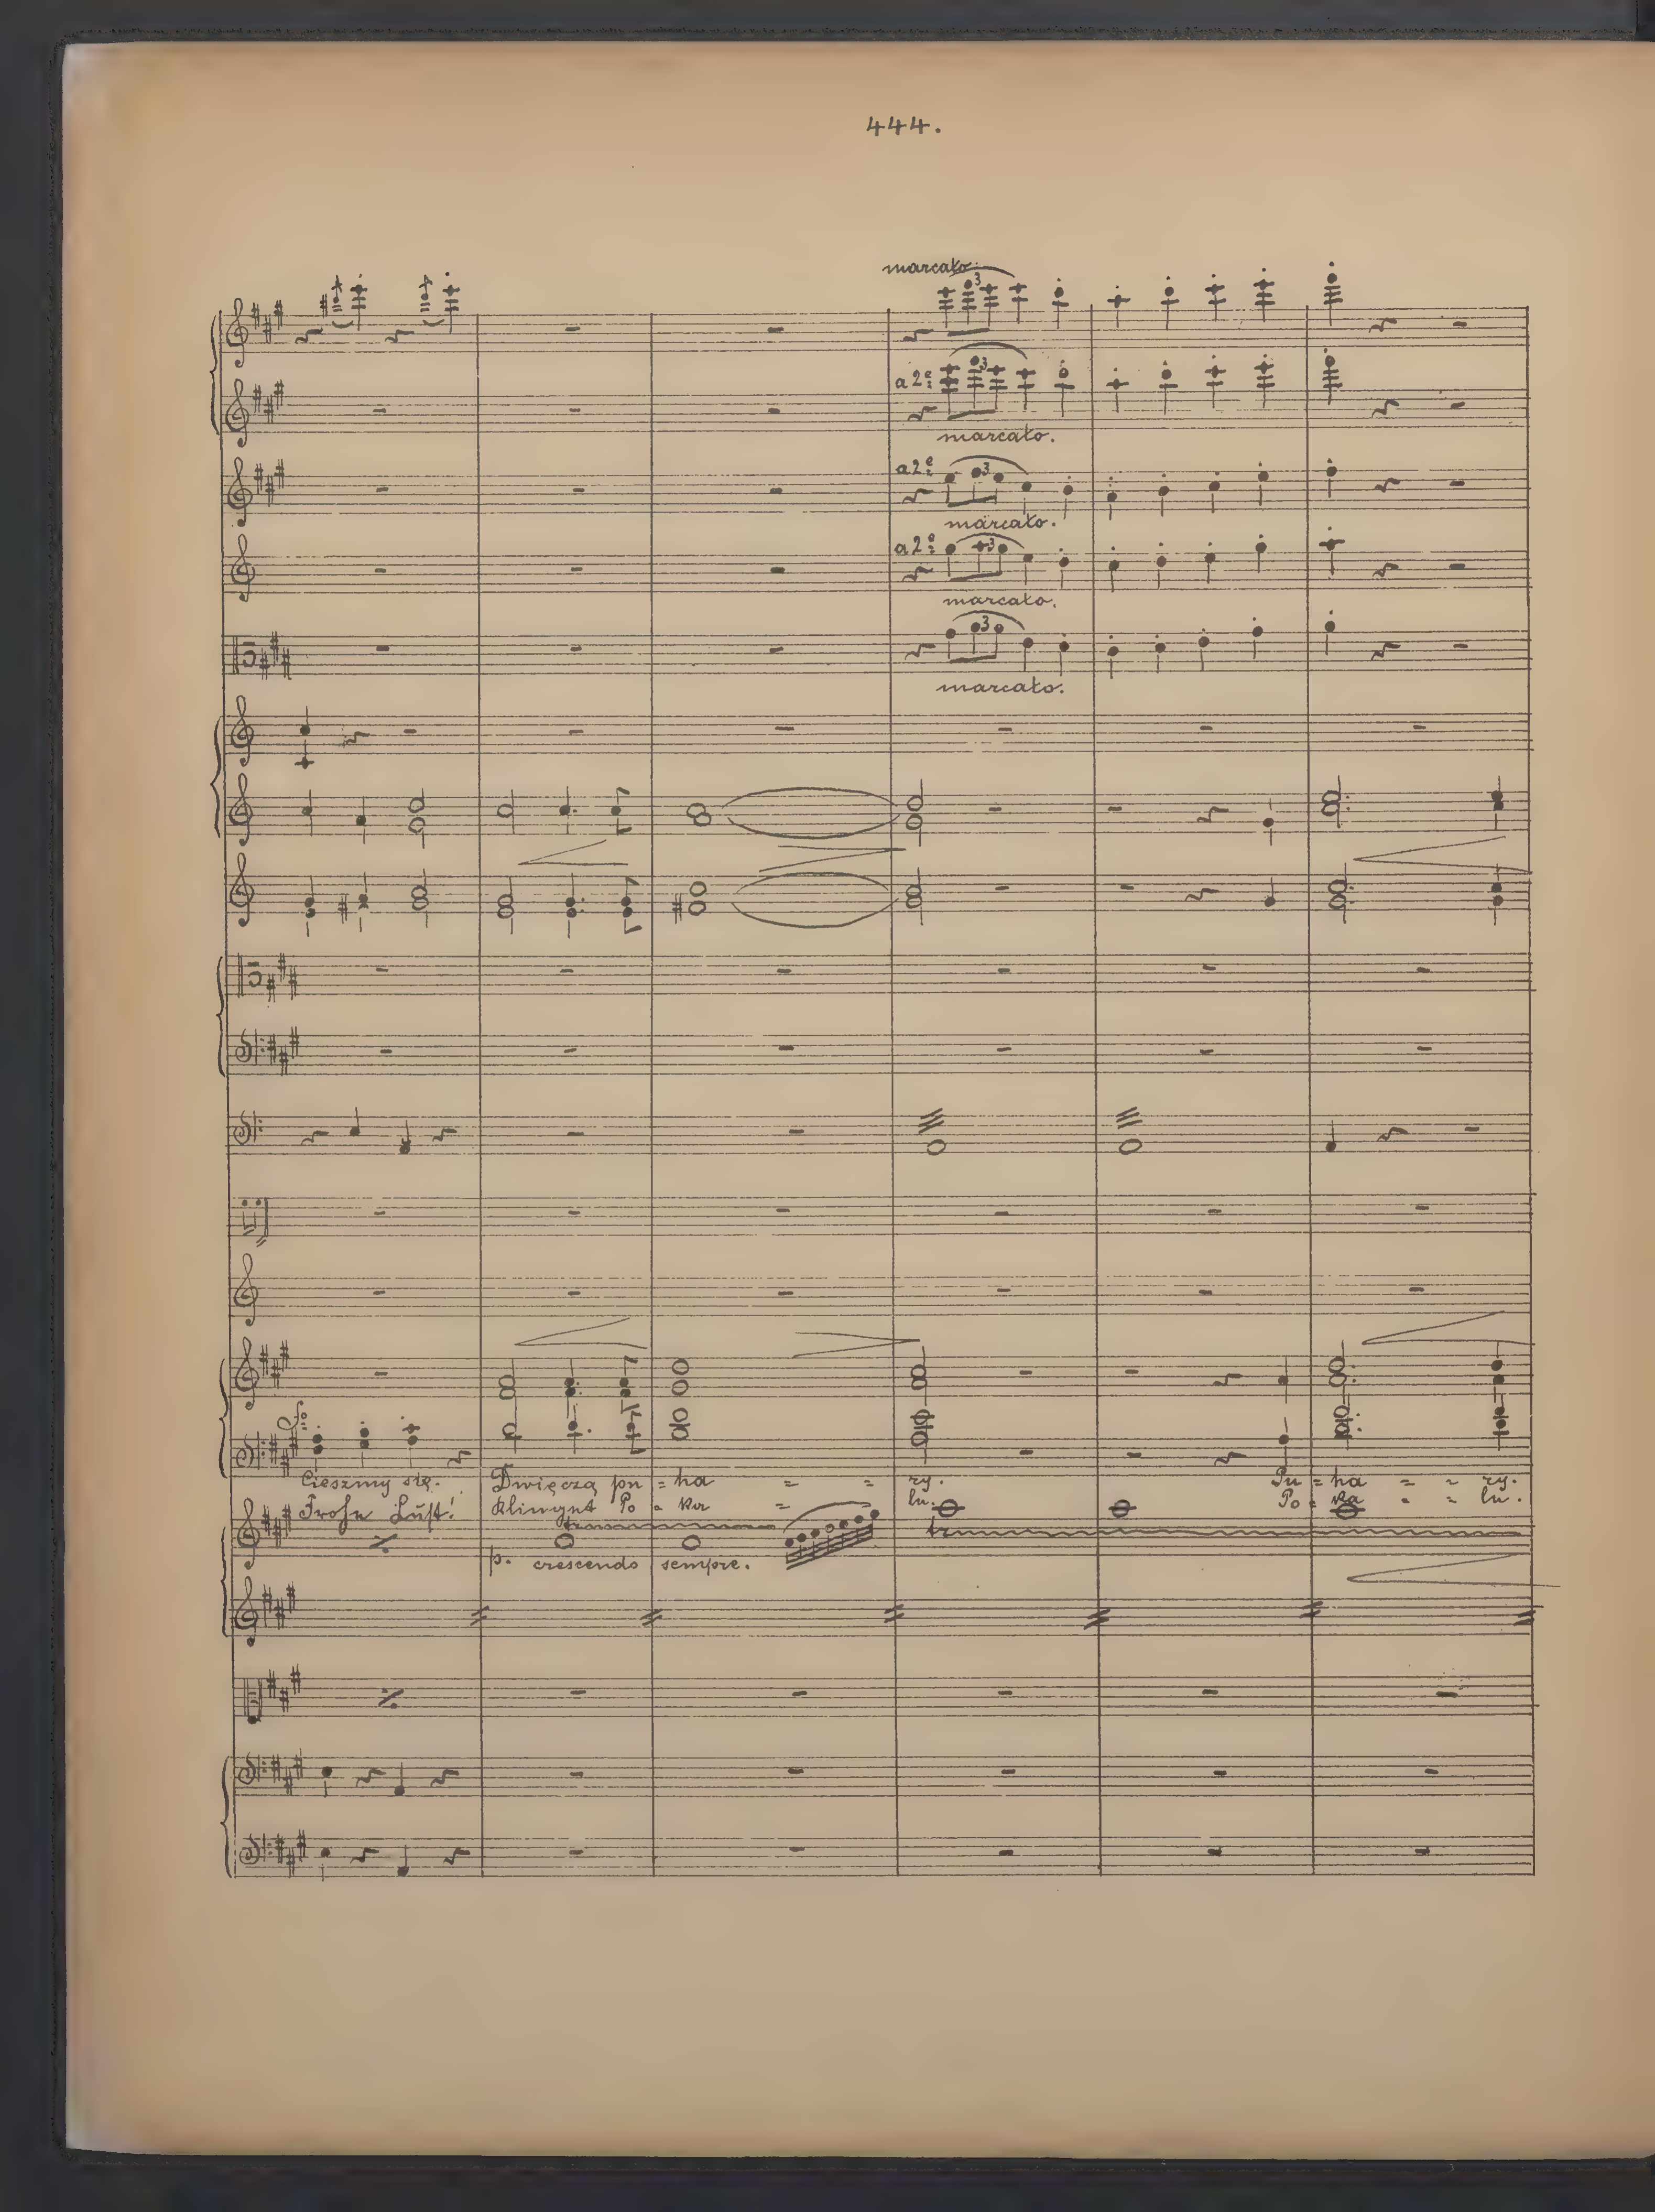 444.
marcato.
3
a 2e:
3
marcato.
a 2e:
3
marcato.
a 2o:
3
marcato.
3
marcato.
Cieszmy się. Dźwięczą pu = ha = = ry. Pu = ha = = ry.
Frohe Lust! Klinget Po = ka = = lu. Po = ka = = lu.
tr
tr
p. crescendo sempre.